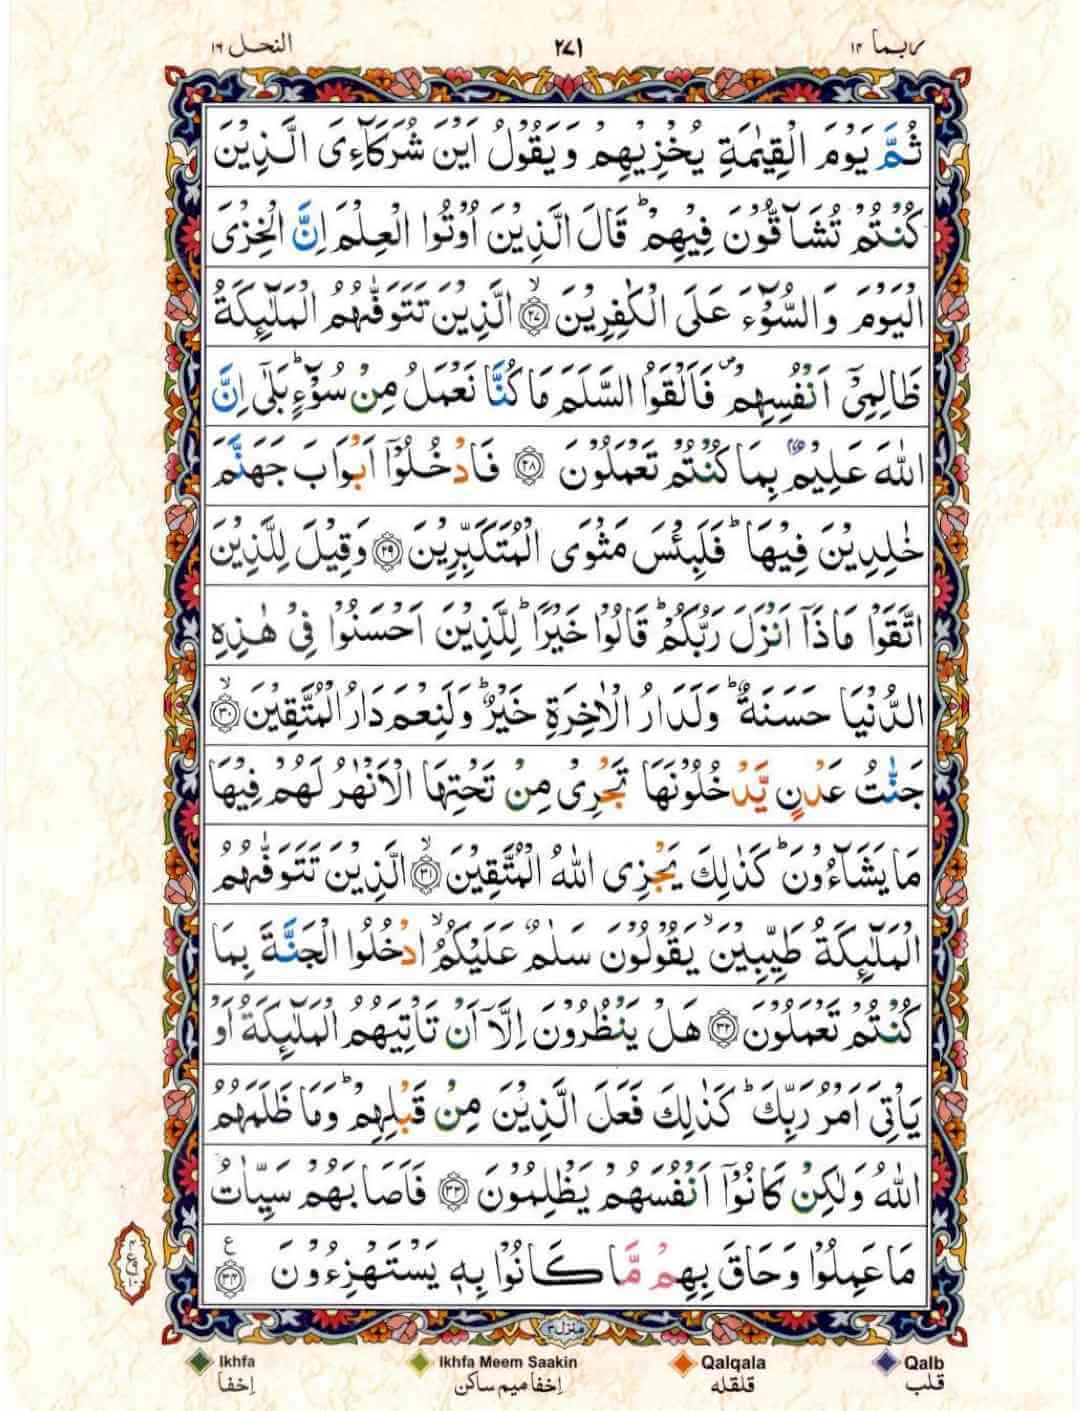 ربما ۱۴ ۲۷۱ النحل ۱۶
ثُمَّ يَوْمَ الْقِيٰمَةِ يُخْزِيْهِمْ وَيَقُوْلُ اَيْنَ شُرَكَآءِىَ الَّذِيْنَ
كُنْتُمْ تُشَآقُّوْنَ فِيْهِمْ ؕ قَالَ الَّذِيْنَ اُوْتُوا الْعِلْمَ اِنَّ الْخِزْىَ
الْيَوْمَ وَالسُّوْٓءَ عَلَى الْكٰفِرِيْنَ ۙ‏﴿۲۷﴾ الَّذِيْنَ تَتَوَفّٰٮهُمُ الْمَلٰٓئِكَةُ
ظَالِمِىْٓ اَنْفُسِهِمْ ۖ فَاَلْقَوُا السَّلَمَ مَا كُنَّا نَعْمَلُ مِنْ سُوْٓءٍ ؕ بَلٰٓى اِنَّ
اللّٰهَ عَلِيْمٌۢ بِمَا كُنْتُمْ تَعْمَلُوْنَ ﴿۲۸﴾ فَادْخُلُوْٓا اَبْوَابَ جَهَنَّمَ
خٰلِدِيْنَ فِيْهَا ؕ فَلَبِئْسَ مَثْوَى الْمُتَكَبِّرِيْنَ ﴿۲۹﴾ وَقِيْلَ لِلَّذِيْنَ
اتَّقَوْا مَاذَاۤ اَنْزَلَ رَبُّكُمْ ؕ قَالُوْا خَيْرًا ؕ لِلَّذِيْنَ اَحْسَنُوْا فِىْ هٰذِهِ
الدُّنْيَا حَسَنَةٌ ؕ وَلَدَارُ الْاٰخِرَةِ خَيْرٌ ؕ وَلَنِعْمَ دَارُ الْمُتَّقِيْنَ ۙ﴿۳۰﴾
جَنّٰتُ عَدْنٍ يَّدْخُلُوْنَهَا تَجْرِىْ مِنْ تَحْتِهَا الْاَنْهٰرُ لَهُمْ فِيْهَا
مَا يَشَآءُوْنَ ؕ كَذٰلِكَ يَجْزِى اللّٰهُ الْمُتَّقِيْنَ ۙ﴿۳۱﴾ الَّذِيْنَ تَتَوَفّٰٮهُمُ
الْمَلٰٓئِكَةُ طَيِّبِيْنَ ۙ يَقُوْلُوْنَ سَلٰمٌ عَلَيْكُمُ ۙ ادْخُلُوا الْجَنَّةَ بِمَا
كُنْتُمْ تَعْمَلُوْنَ ﴿۳۲﴾ هَلْ يَنْظُرُوْنَ اِلَّاۤ اَنْ تَاْتِيَهُمُ الْمَلٰٓئِكَةُ اَوْ
يَاْتِىَ اَمْرُ رَبِّكَ ؕ كَذٰلِكَ فَعَلَ الَّذِيْنَ مِنْ قَبْلِهِمْ ؕ وَمَا ظَلَمَهُمُ
اللّٰهُ وَلٰكِنْ كَانُوْٓا اَنْفُسَهُمْ يَظْلِمُوْنَ ﴿۳۳﴾ فَاَصَابَهُمْ سَيِّاٰتُ
مَا عَمِلُوْا وَحَاقَ بِهِمْ مَّا كَانُوْا بِهٖ يَسْتَهْزِءُوْنَ ﴿۳۴﴾ ع
منزل ۳
Ikhfa Ikhfa Meem Saakin Qalqala Qalb
إخفا إخفا ميم ساكن قلقله قلب